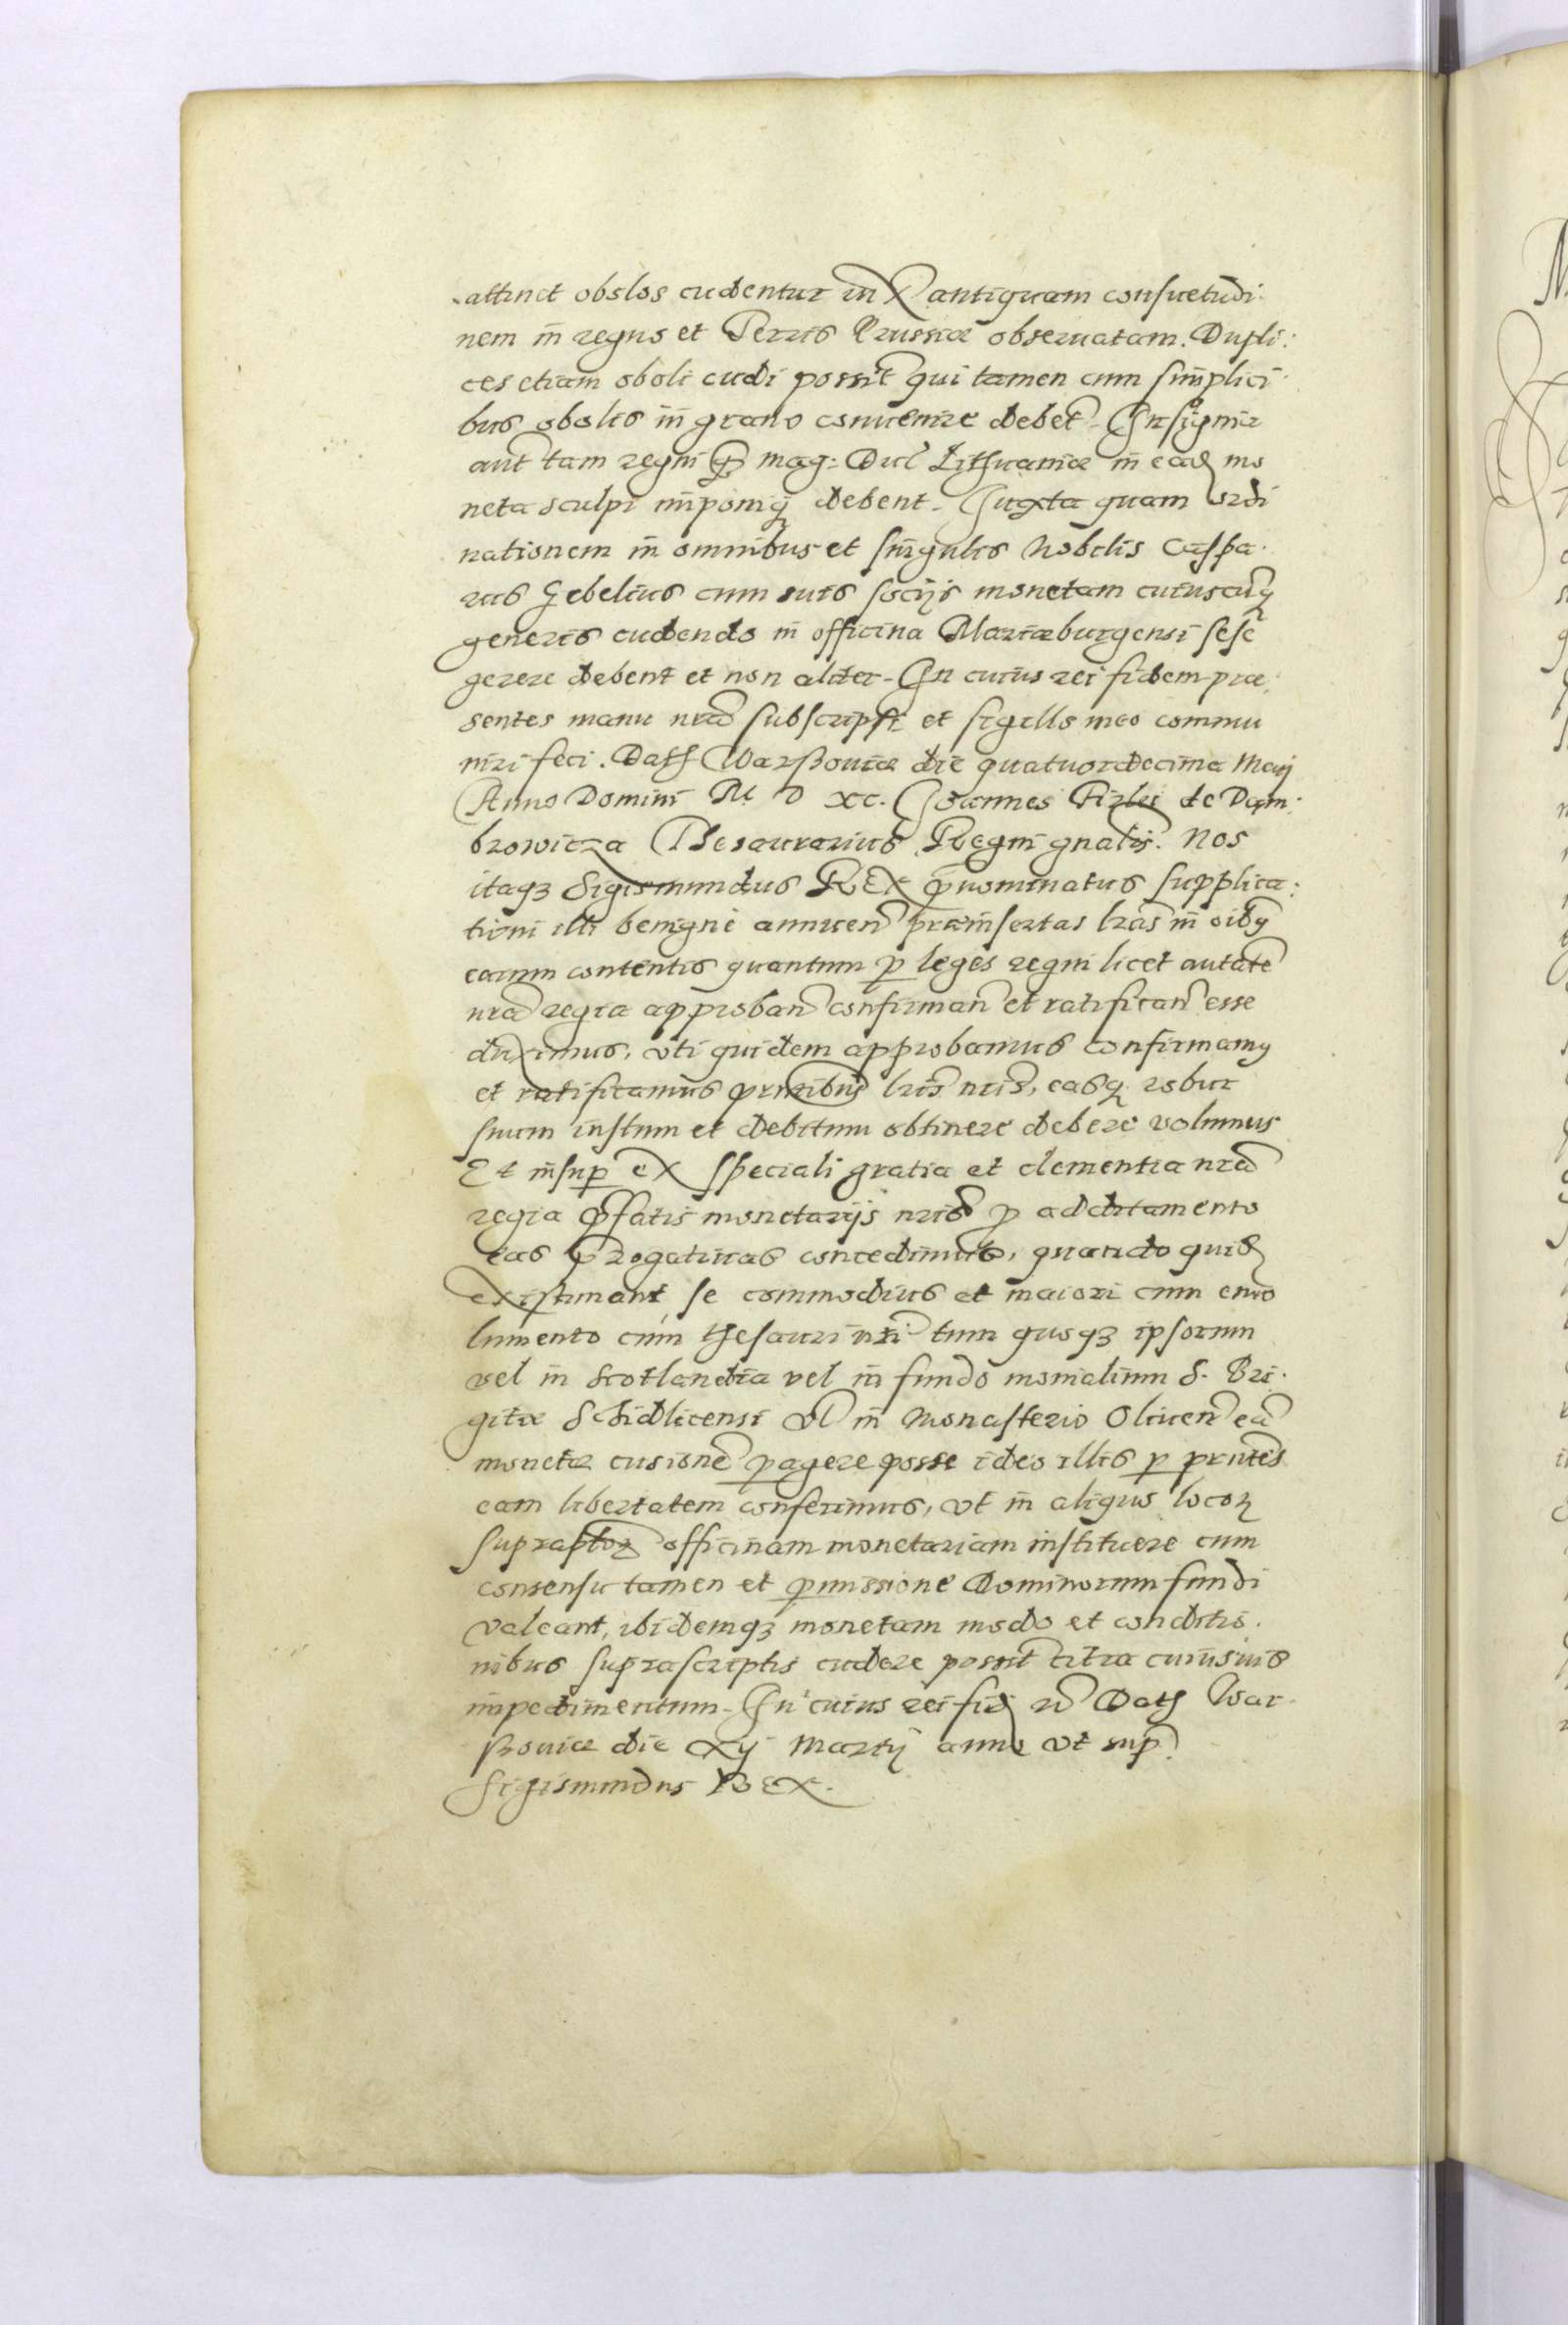 attinet obolos cudentur iux antiquam consuetudi:
nem in regno et Terris Prussiæ obseruatam. Dupli:
ces etiam oboli cudi possūt qui tamen cum simplici
bus obolis in grano conuenire debēt. Insignia
aūt tam regni q̄ mag: Duc̄ Lithuaniæ in eadē mo
neta sculpi imponiq₃ debent. Juxta quam ordi
nationem in omnibus et singulis Nobilis Caspa
rus Gebelius cum suis socijs monetam cuiuscūq₃
generis cudendo in officina Mariæburgensi sese
gerere debent et non aliter. In cuius rei fidem præ:
sentes manu nrā subscripsi et sigillo meo commu
niri feci. Datt Warssouiæ die quatuordecima Maij
Anno Domini M D XC. Joannes Firlei de Dam:
browicza Thesaurarius Regni gnālis. Nos
itaq₃ Sigismundus REX p̄nominatus supplica:
tioni illi benignè annuen̄ præinsertas lrās in oīb₉
earum contentis quantum p̱ leges regni licet autāte
nrā regia approban̄ confirman̄ et ratifican̄ esse
duximus, vti quidem approbamus confirmam₉
et ratificamus pn̄tibus lrīs nrīs, easq₃ robur
suum iustum et debitum obtinere debere volumus
Et insup̱ ex speciali gratia et clementia nrā
regia p̄fatis monetarijs nrīs p̱ additamento
eas p̱rogatiuas concedimus, quando quidē
existimant, se commodius et maiori cum emo
lumento cùm thesauri nrī tum quoq₃ ipsorum
vel in Scotlandia vel in fundo monialium S. Bri:
gitæ Schidlicensi vl̄ in Monasterio Oliuen̄ eā
monetæ cusionē p̱agere posse ideo illis p̱ pn̄tes
eam libertatem conferimus, vt in aliquo locoꝝ
supradtoꝝ officinam monetariam instituere cum
consensu tamen et p̱missione Dominorum fundi
valeant, ibidemq₃ monetam modo et conditio.
nibus suprascriptis cudere possūt citra cuiusuis
impedimentum. In cuius rei fidē rc̄ Datt War
ssouiæ die xij Martij anno vt sup̄.
Sigismundus REX.